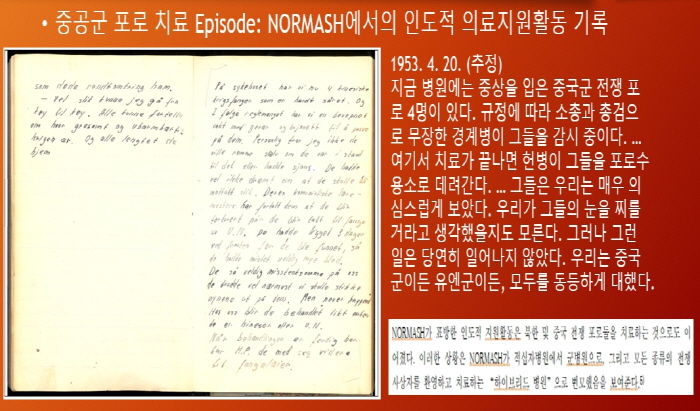 • 중공군 포로 치료 Episode: NORMASH에서의 인도적 의료지원활동 기록
som døde rundtomkring ham.
- Vel slik kunne jeg gå fra
køy til køy. Alle kunne fortelle
om hvor grusomt og ubarmhjertig
krigen er. Og alle lengtet de
hjem
På sykehuset har vi nu 4 kinesiske
krigsfanger som er hardt såret. Og
i følge reglementet har vi en bevepnet
vakt med gevær og bajonett til å passe
på dem. Personlig tror jeg ikke de
ville rømme selv om de var i stand
til det eller hadde sjans. De hadde
vel ikke drømt om at de skulle bli
mottatt slik. Deres kommunistiske lære-
mestere har fortalt dem at de blir
torturert når de blir tatt til fange
av U.N. De hadde ligget 3 dager
ved fronten før de ble funnet, så
de hadde mistet veldig mye blod.
De så veldig mistenksomme på oss
de trodde vel nærmest vi skulle stikke
øynene ut på dem. Men never happened
Hos oss blir de behandlet likt enten
de er kinesere eller U.N.
Når behandlingen er ferdig her
tar M.P. de med seg videre
til fangeleier.
1953. 4. 20. (추정)
지금 병원에는 중상을 입은 중국군 전쟁 포
로 4명이 있다. 규정에 따라 소총과 총검으
로 무장한 경계병이 그들을 감시 중이다. ...
여기서 치료가 끝나면 헌병이 그들을 포로수
용소로 데려간다. ... 그들은 우리는 매우 의
심스럽게 보았다. 우리가 그들의 눈을 찌를
거라고 생각했을지도 모른다. 그러나 그런
일은 당연히 일어나지 않았다. 우리는 중국
군이든 유엔군이든, 모두를 동등하게 대했다.
NORMASH가 포방한 인도적 지원활동은 북한 및 중국 전쟁 포로들을 치료하는 것으로도 이
어졌다. 이러한 상황은 NORMASH가 적십자병원에서 군병원으로, 그리고 모든 종류의 전쟁
사상자를 환영하고 치료하는 “하이브리드 병원”으로 변모했음을 보여준다.5)